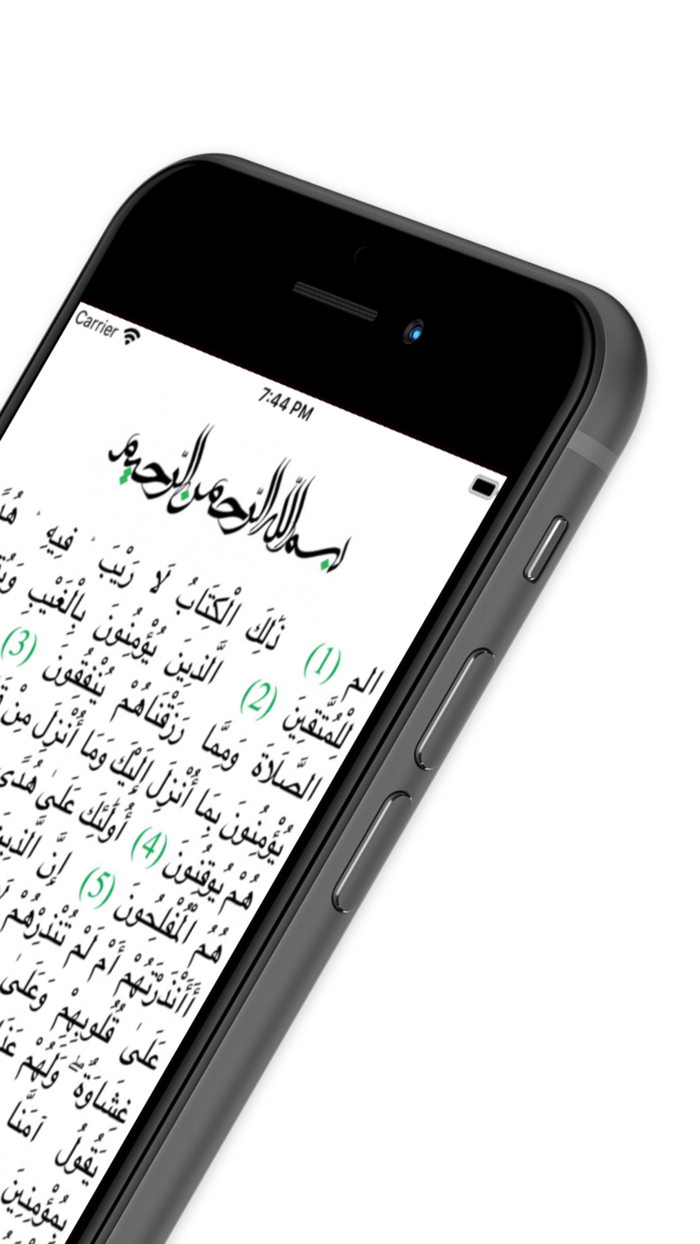 Carrier
7:44 PM
بسم الله الرحمن الرحيم
الم (1) ذَٰلِكَ الْكِتَابُ لَا رَيْبَ ۛ فِيهِ ۛ
لِّلْمُتَّقِينَ (2) الَّذِينَ يُؤْمِنُونَ بِالْغَيْبِ
الصَّلَاةَ وَمِمَّا رَزَقْنَاهُمْ يُنْفِقُونَ (3)
يُؤْمِنُونَ بِمَا أُنْزِلَ إِلَيْكَ وَمَا أُنْزِلَ مِنْ
هُمْ يُوقِنُونَ (4) أُولَٰئِكَ عَلَىٰ هُدًى
هُمُ الْمُفْلِحُونَ (5) إِنَّ الَّذِينَ
أَأَنْذَرْتَهُمْ أَمْ لَمْ تُنْذِرْهُمْ
عَلَىٰ قُلُوبِهِمْ وَعَلَىٰ
غِشَاوَةٌ ۖ وَلَهُمْ
يَقُولُ آمَنَّا
بِمُؤْمِنِينَ